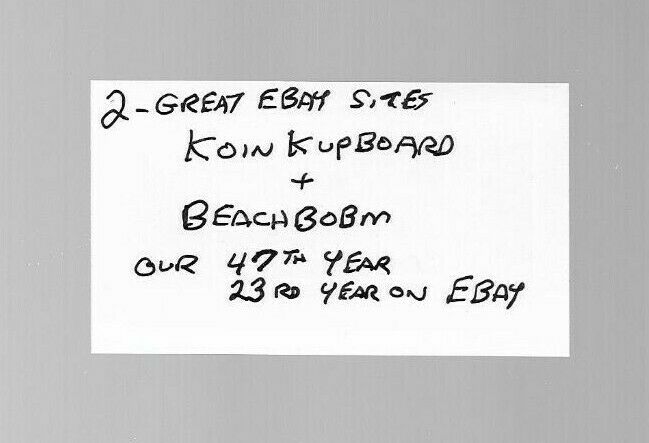 2-GREAT EBAY SITES
KOIN KUPBOARD
+
BEACHBOBM
OUR 47TH YEAR
23RD YEAR ON EBAY